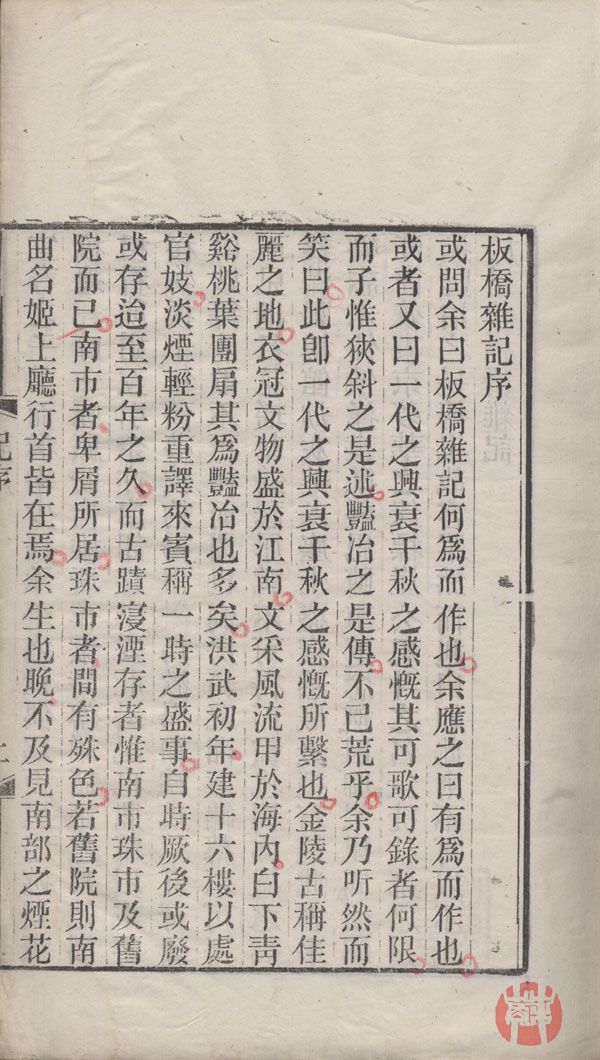 板橋雜記序
或問余曰板橋雜記何爲而作也余應之曰有爲而作也
或者又曰一代之興衰千秋之感慨其可歌可錄者何限
而子惟狹斜之是述豔冶之是傳不已荒乎余乃听然而
笑曰此卽一代之興衰千秋之感慨所繫也金陵古稱佳
麗之地衣冠文物盛於江南文采風流甲於海內白下靑
谿桃葉團扇其爲豔冶也多矣洪武初年建十六樓以處
官妓淡煙輕粉重譯來賓稱一時之盛事自時厥後或廢
或存迨至百年之久而古蹟寖湮存者惟南市珠市及舊
院而已南市者卑屑所居珠市者間有殊色若舊院則南
曲名姬上廳行首皆在焉余生也晚不及見南部之煙花
記序